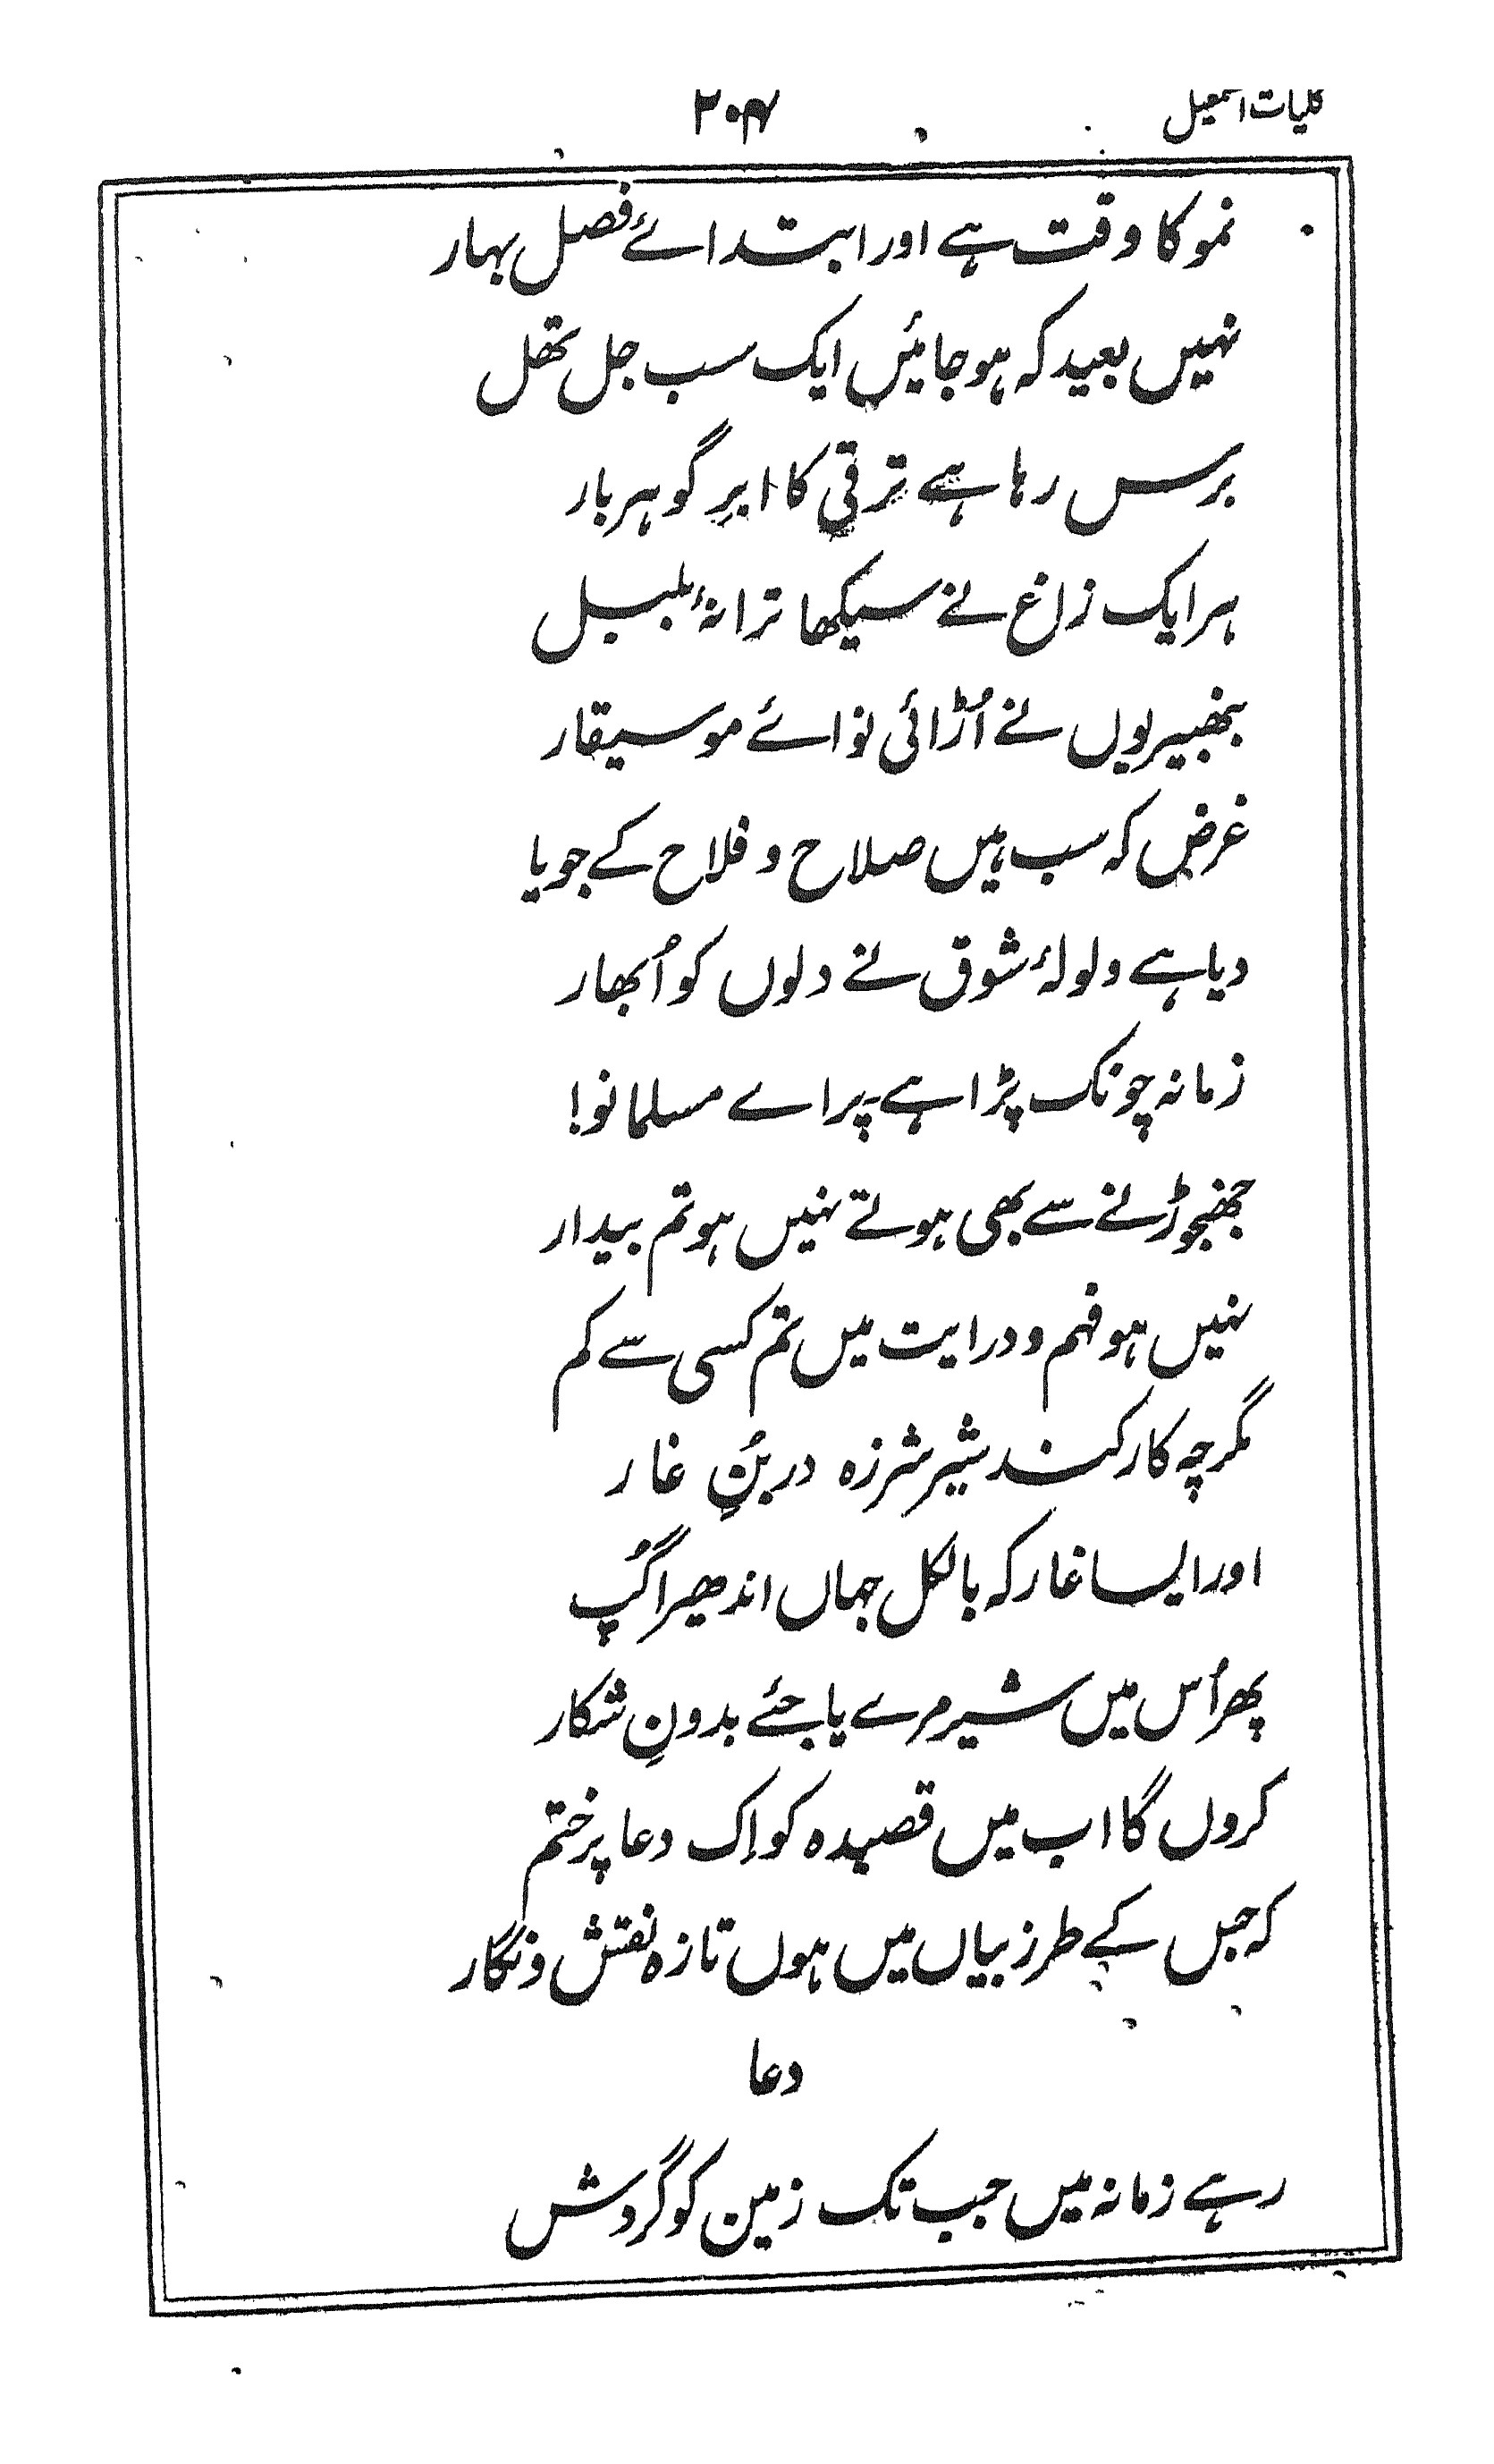 کلیات اسمٰعیل ۲۰۴
نمو کا وقت ہے اور ابتدائے فصل بہار
نہیں بعید کہ ہو جائیں ایک سب جل تھل
برس رہا ہے ترقی کا ابرِ گوہر بار
ہر ایک زاغ نے سیکھا ترانۂ بلبل
بھنبیریوں نے اُڑائی نوائے موسیقار
غرض کہ سب ہیں صلاح و فلاح کے جویا
دیا ہے ولولۂ شوق نے دلوں کو اُبھار
زمانہ چونک پڑا ہے۔ پر اے مسلمانو!
جھنجوڑنے سے بھی ہوتے نہیں ہو تم بیدار
نہیں ہو فہم و درایت میں تم کسی سے کم
مگر چہ کار کند شیر شرزہ در بُنِ غار
اور ایسا غار کہ بالکل جہاں اندھیرا گُپ
پھر اُس میں شیر مرے یا جئے بدونِ شکار
کروں گا اب میں قصیدہ کو اِک دعا پر ختم
کہ جس کے طرز بیاں میں ہوں تازہ نقش و نگار
دعا
رہے زمانہ میں جب تک زمین کو گردش